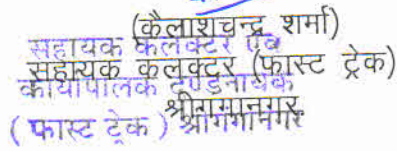 (कैलाशचन्द्र शर्मा)
सहायक कलेक्टर एवं
सहायक कलेक्टर (फास्ट ट्रेक)
कार्यपालक दण्डनायक
श्रीगंगानगर
( फास्ट ट्रेक ) श्रीगंगानगर